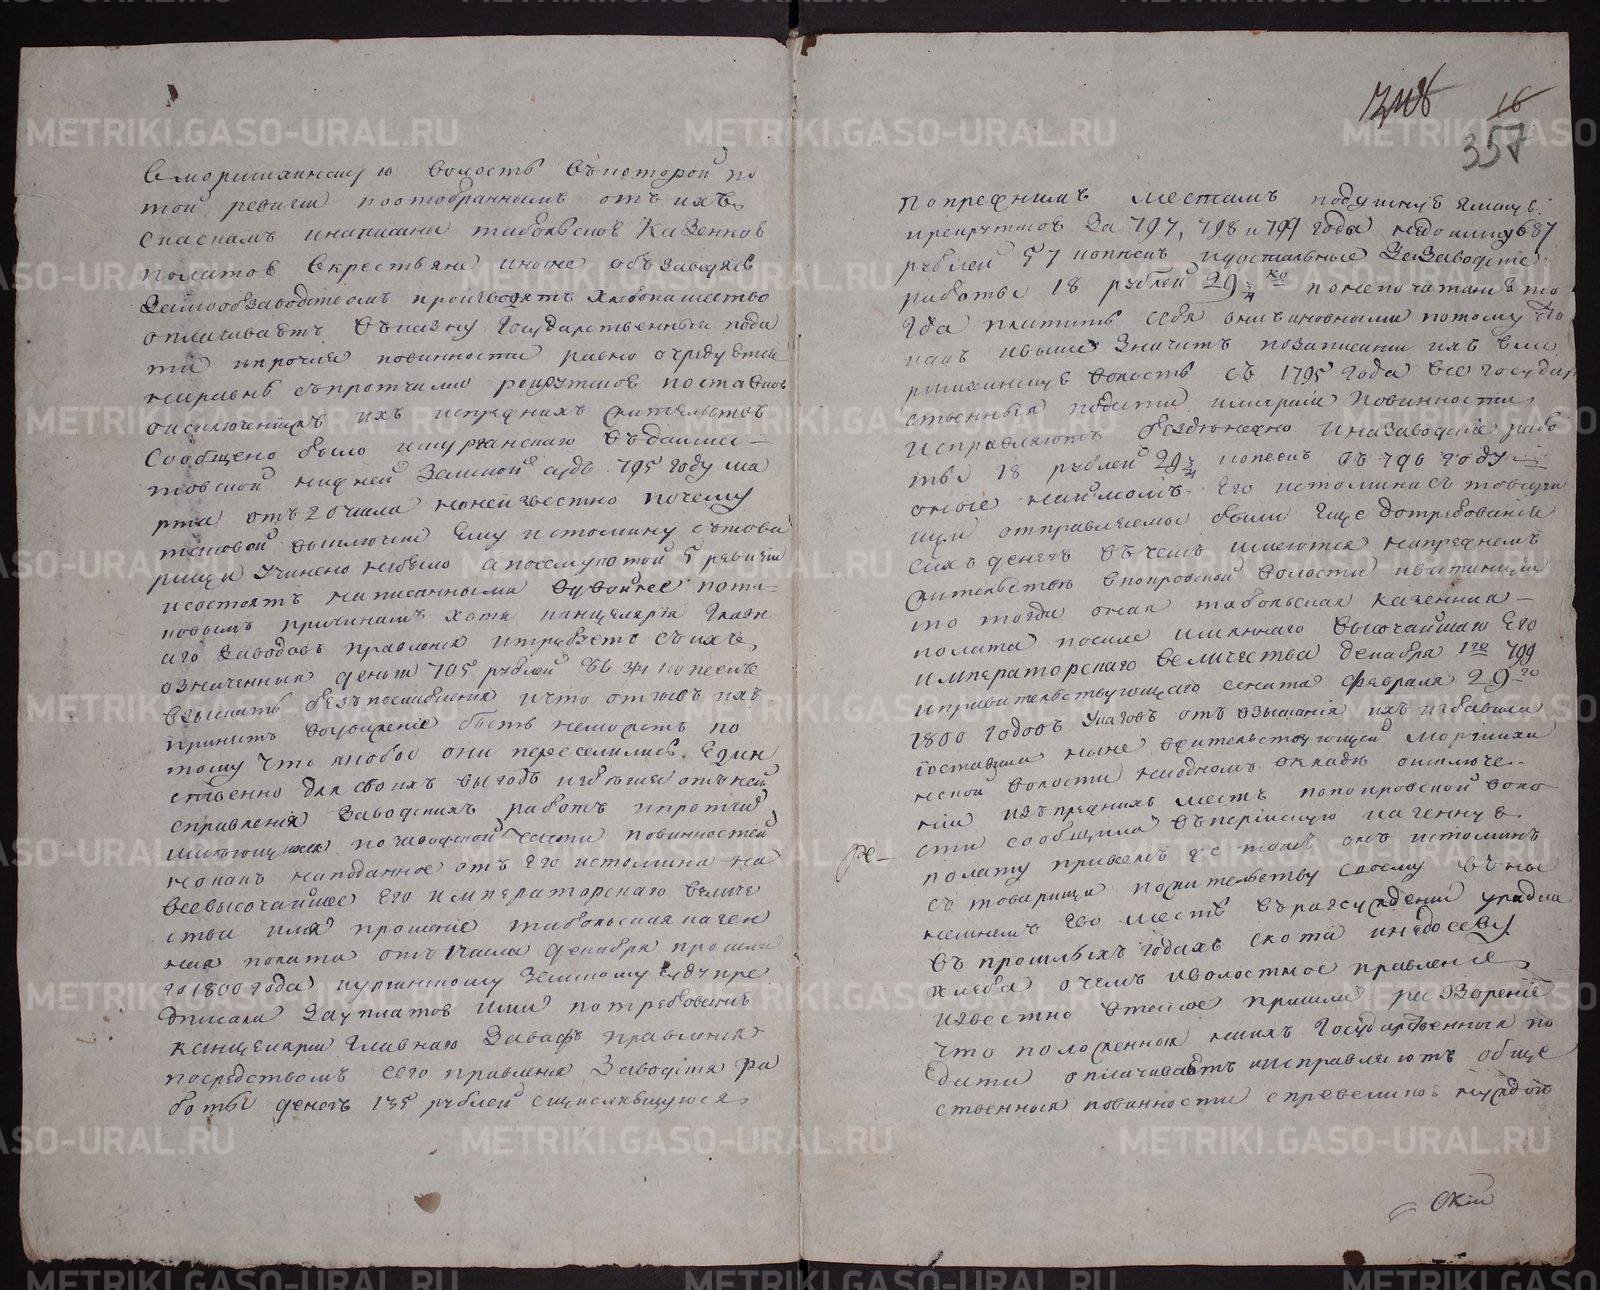 вморшихинскую волость вкоторой по
той ревизии поотобраннымъ отъ ихъ
спискамъ инаписаны тобольской казенной
полатой вкрестьяне иныне обзаведясь
домообзаводствомъ производятъ хлебопашество
оплачиваютъ вказну Государственныя пода
ти ипрочия повинности равно очередьми
наравне съпротчими рекрутской поставкой
оисключенiи ихъ испрежнихъ жительствъ
сообщено было ишуранскаго вдалма
товской нижней земской судъ 795 году ма
рта отъ 20 числа ноне известно почему
таковой выключки ему истомину стова
рищи учинено небыло апоселику потой 5 ревизии
исостоятъ написанными вдвойне пота
ковымъ причинамъ хотя канцелярiя Главн
аго заводовъ правления итребуетъ сънихъ
означенныя деньги 705 рублей копеекъ
взыскать безъ послабления ичто отзывъ ихъ
принятъ вуважение быть неможетъ по
тому что якобы они переселились един
ственно для своихъ выгодъ избегая отъ ней
справления заводскихъ работъ ипротчихъ
имеющихся по заводской части повинностей
нокакъ наподанное отъ его истомина на
всевысочайшее его императорскаго величе
ства имя прошение тобольская казен
ная полата отъ 1 числа декабря прошла
го 1800 года курганскому земскому суду пре
дписала зауплатою ими потребованию
канцелярии Главнаго заводовъ правления
посредствомъ сего правления заводския ра
боты денегъ 135 рублей счислявшуюся
348
16
357
попрежнимъ местамъ подушную ямскую
ирекрутскую за 797, 798 и 799 годы недоимку 687
рублей 57 копеекъ идостальные зазаводские
работы 18 рублей 29 3/4 ко
года платить себя они виновными потому что
какъ ивыше значитъ позаписании ихъ вмо
ршихинскую волость съ 1795 года все государ
ственныя подати имирския повинности
исправляютъ бездоимочно иназаводские рабо
ты 18 рублей 29 3/4 копеекъ въ 796 году
оные наймомъ его истомина стовари
щи отправляемы были еще дотребования
сихъ денегъ вчемъ имеются напрежнемъ
жительстве впокровской волости иквитанции
то тогда оная тобольская казенная
полата после имяннаго высочайшаго его
императорскаго величества декабря 1го 799
иправительствующаго сената февраля 29го
1800 годовъ указовъ отъ взыскания ихъ избавила
iоставила ныне вжительствующей моршихи
нской волости наодномъ окладе оисключе
нии изъ прежнихъ местъ попокровской воло
сти сообщила въпермскую казенную
ре-
полату причемъ где томъ онъ истоминъ
стоварищи пожительству своему въны
нешнемъ его месте въразсуждении упадка
въ прошлыхъ годахъ скота инедосеву
хлеба очемъ иволостное правление
известно втакое пришли разорение
что положенныя нанихъ Государственныя по
дати оплачиваютъ иисправляютъ обще
ственныя повинности спревеликой нуждой
ски